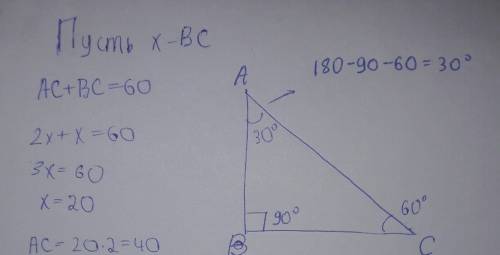 Пусть x-BC
AC+BC=60
2x+x=60
3x=60
x=20
AC=20·2=40
180-90-60=30°
A
30°
90°
60°
B
C